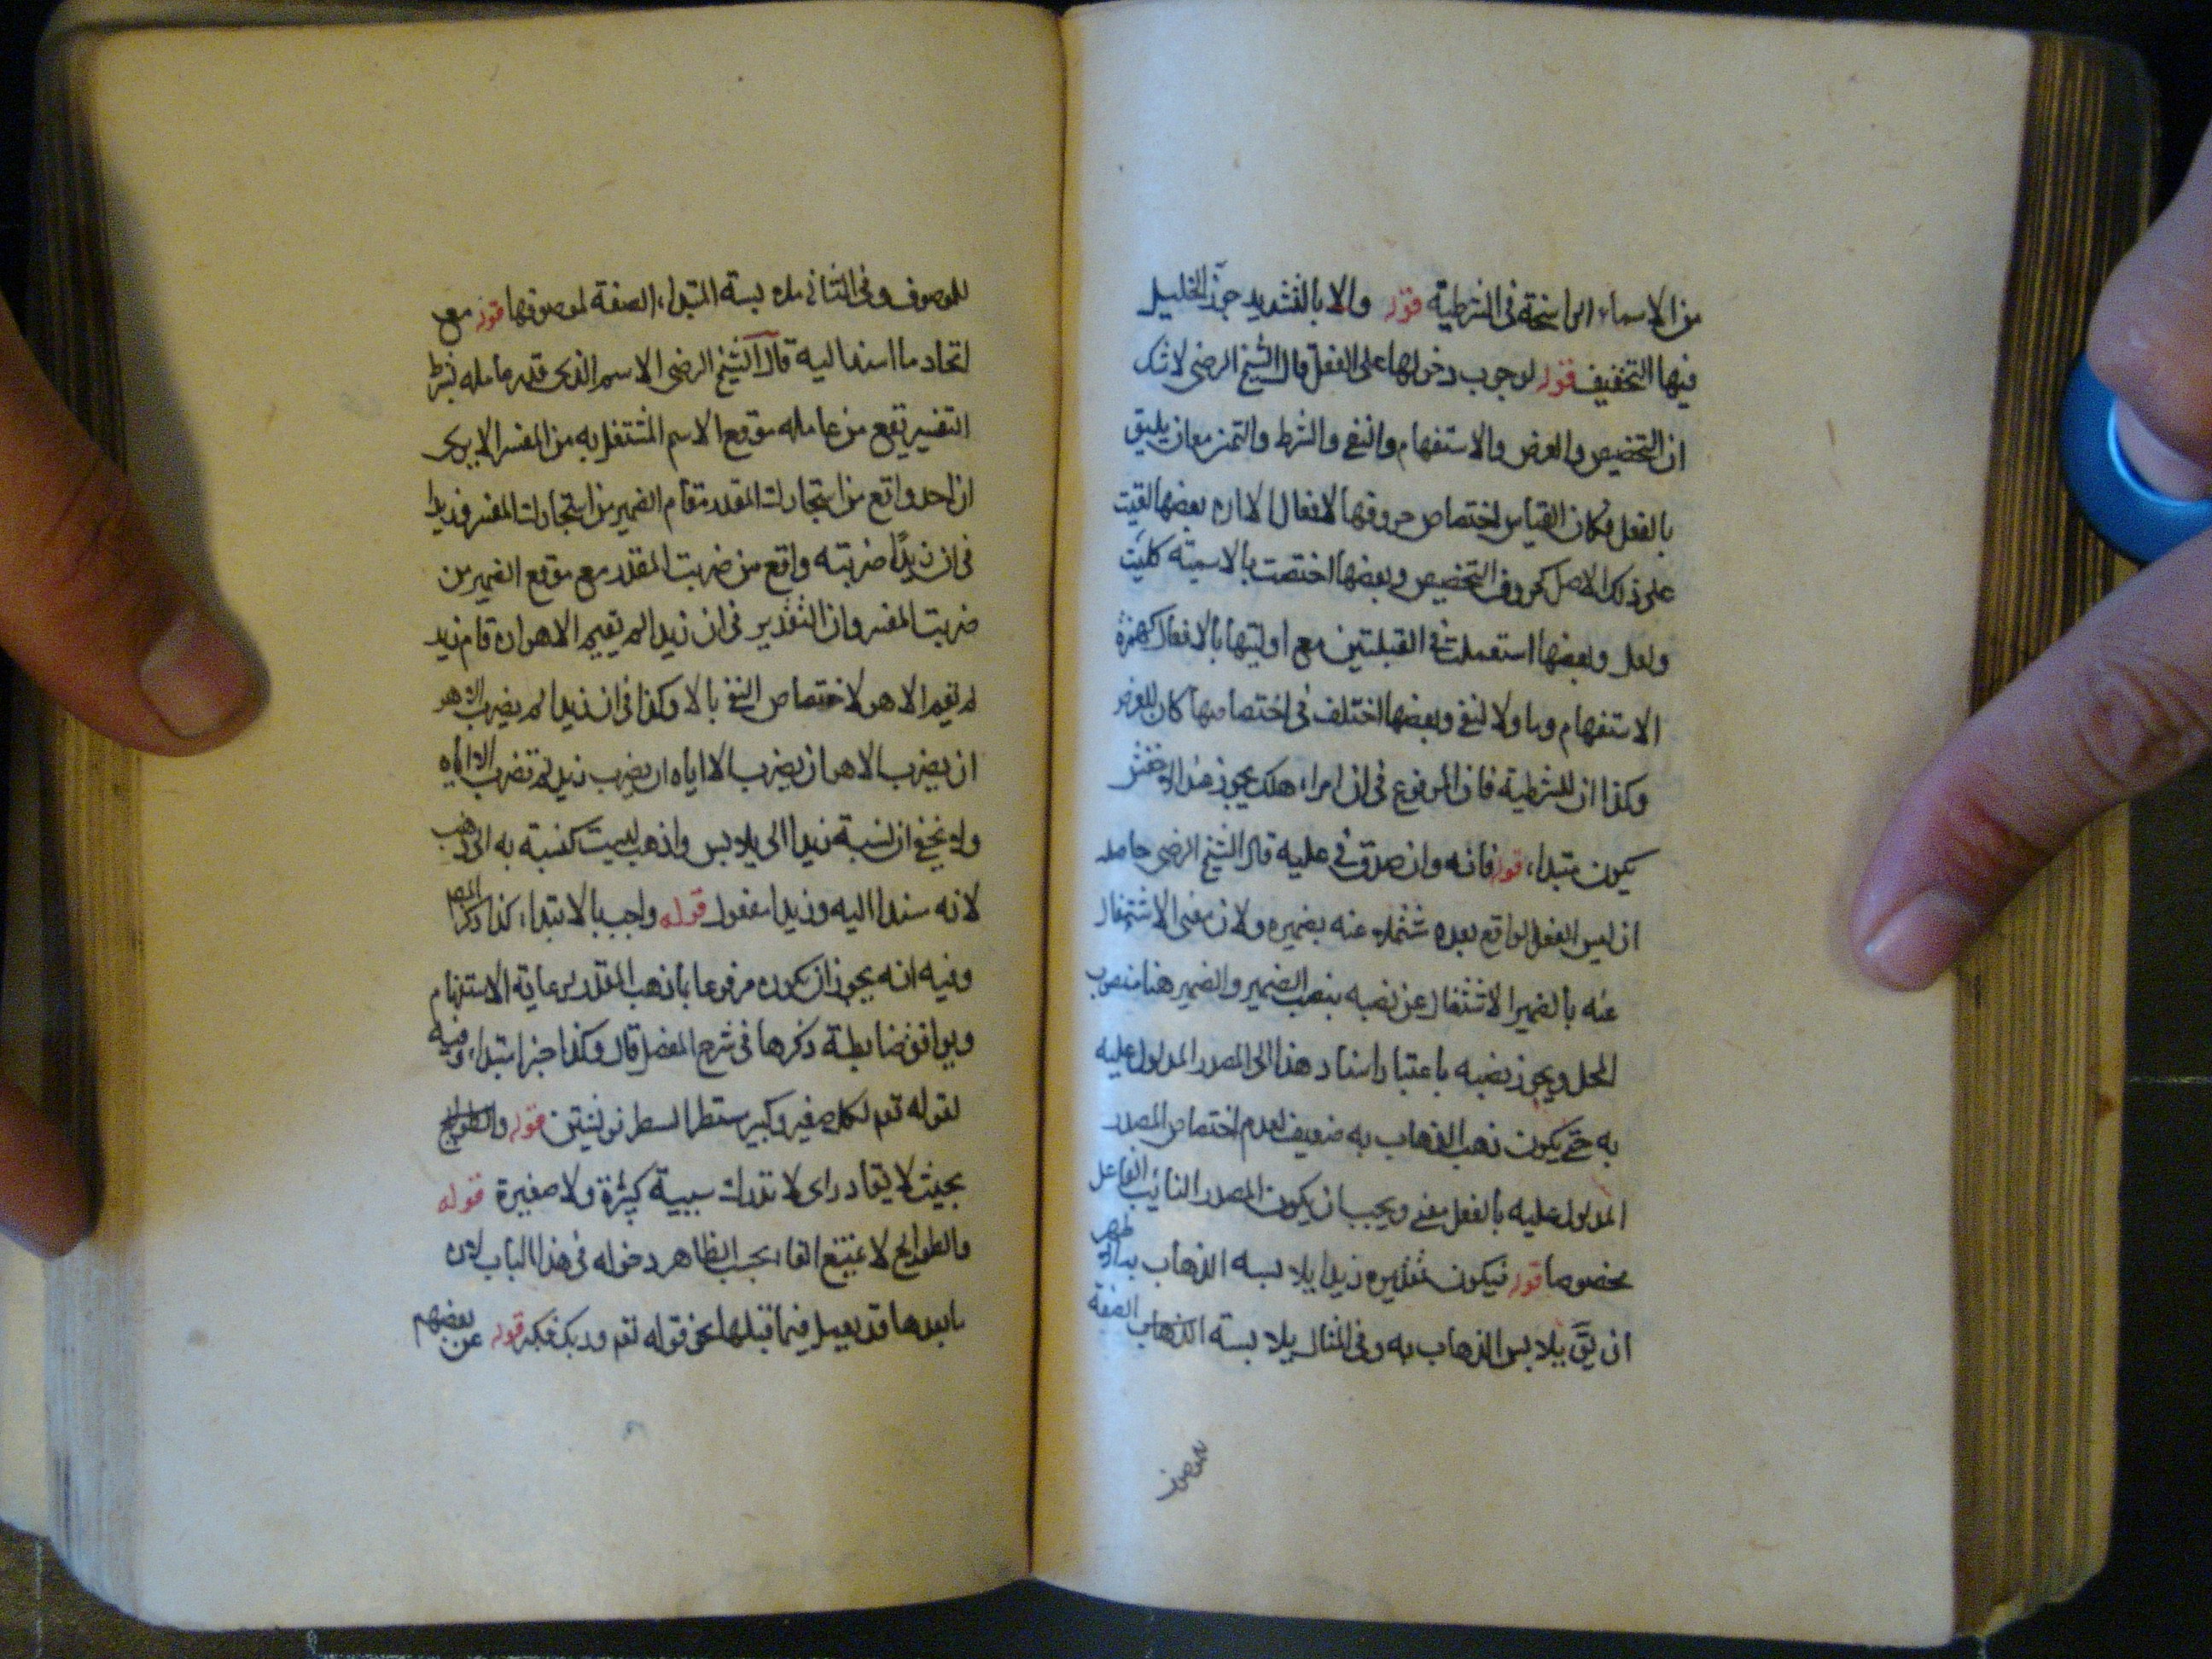 من الاسماء الراسخة فى الشرطية قوله والا بالتشديد جوز الخليل
فيها التخفيف قوله لوجوب دخولها على الفعل قال الشيخ الرضى لا شك
ان التحضيض والعرض والاستفهام والنفى والشرط والتمنى معان يليق
بالفعل فكان القياس اختصاص حروفها بالافعال الا ان بعضها بقيت
على ذلك الاصل كحروف التحضيض وبعضها اختصت بالاسمية كليت
ولعل وبعضها استعملت فى القبيلتين مع اوليتها بالافعال كهمزة
الاستفهام وما ولا للنفى وبعضها اختلف فى اختصاصها كالا للعرض
وكذا ان للشرطية فان المرفوع فى ان امراء هلك يجوز عند الاخفش
يكون مبتداء قوله فانه وان صدق عليه قال الشيخ الرضى حاصله
ان ليس الفعل الواقع بعده مشتغلا عنه بضميره ولان معنى الاشتغال
عنه بالضمير الاشتغال عن نصبه بنصب الضمير والضمير هنا منصوب
المحل ويجوز نصبه باعتبار اسناد هذا الى المصدر المدلول عليه
به حتى يكون ذهب الذهاب به ضعيف لعدم اختصاص المصدر
المدلول عليه بالفعل معنى ويجب ان يكون المصدر النائب الفاعل
مخصوصا قوله فيكون تقديره زيدا يلابسه الذهاب به
ان يق يلابس الذهاب به وفى المثال يلابسه الذهاب الصفة
للموصوف وفى الثانى ملابسة المبتداء الصفة لموصوفها قوله مع
اتحاد ما اسند اليه قال الشيخ الرضى الاسم الذى قدر عامله بشرط
التفسير يقع من عامله موقع الاسم المشتغل به من المفسر الا يرى
ان احدا واقع من استجارك المقدر مقام الضمير من استجارك المفسر وزيدا
فى ان زيدا ضربته واقع من ضربت المقدر مع موقع الضمير من
ضربت المفسر وان التقدير فى ان زيدا لم يقم الا هو ان قام زيد
لم يقم الا هو لاختصاص النفى بالا وكذا فى ان زيدا لم يضرب الا هو
ان يضرب الا هو ان يضرب الا اياه ان يضرب زيد لم تضرب الا اياه
ولا يخفى ان نسبة زيدا الى يلابس واذهب ليست كنسبة به الى ذهب
لانه مسندا اليه وزيدا مفعول قوله واجب بالابتداء كذا ذكر المص
وفيه انه يجوز ان يكون مرفوعا باذهب المقدر برعاية الاستفهام
ويوافق ضابطة ذكرها فى شرح المفصل قال وكذا خبر مبتداء وفيه
لقوله تعم كل صغير وكبير مستطر السطر نوشتن قوله والطوالح
بحيث لا يغادر اى لا تترك سيئة كبيرة ولا صغيرة قوله
والطوالح لا يمتنع الفاء بحسب الظاهر دخوله فى هذا الباب لان
ما بعدها قد يعمل فيما قبلها نحو قوله تعم وربك فكبر قوله عن بعضهم